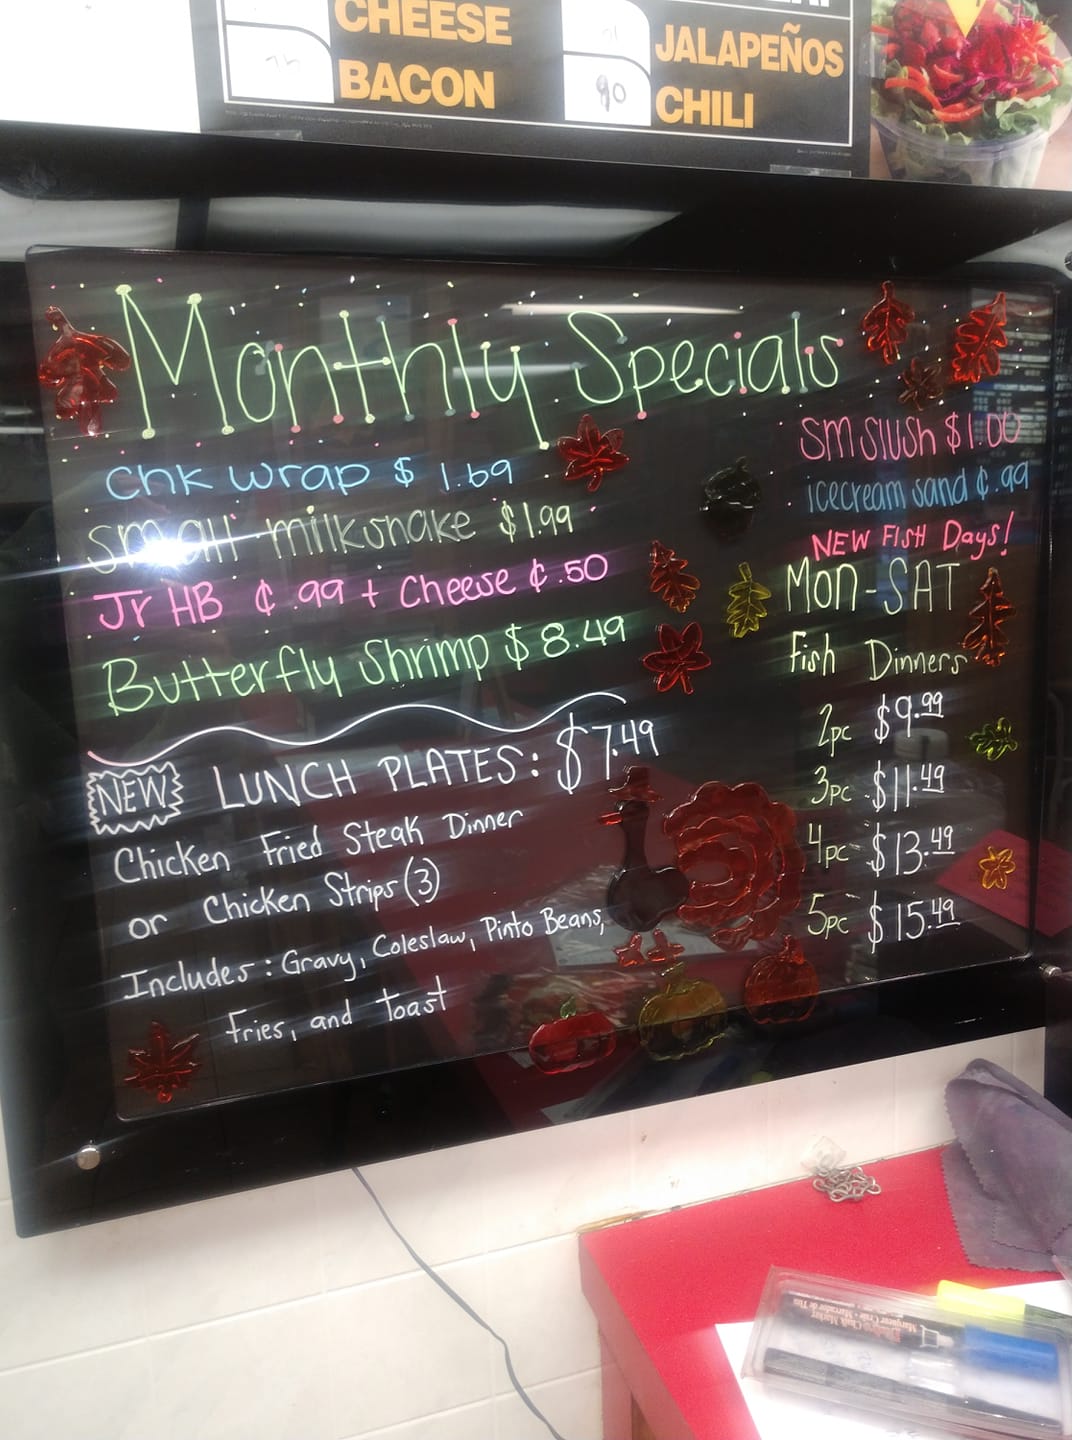 CHEESE
BACON
JALAPEÑOS
90
CHILI
Monthly Specials
chk wrap $ 1.69
small milkshake $1.99
Jr HB ¢ .99 + Cheese ¢ .50
Butterfly Shrimp $ 8.49
NEW LUNCH PLATES: $7.49
Chicken Fried Steak Dinner
or Chicken Strips (3)
Includes: Gravy, Coleslaw, Pinto Beans,
Fries, and toast
sm slush $1.00
icecream sand ¢.99
NEW FISH Days!
MON-SAT
Fish Dinners
2pc $9.99
3pc $11.49
4pc $13.49
5pc $15.49
Chalk Marker